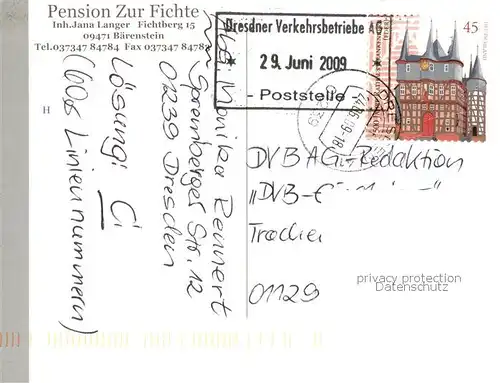 Pension Zur Fichte
Inh.Jana Langer Fichtberg 15
09471 Bärenstein
Tel.037347 84784 Fax 037347 84783
H
Dresdner Verkehrsbetriebe AG
* 29. Juni 2009 *
- Poststelle -
45
Monika Rennert
Spremberger Str. 12
01239 Dresden
Lösung: C
(600er Liniennummern)
DVB AG-Redaktion
01129
privacy protection
Datenschutz